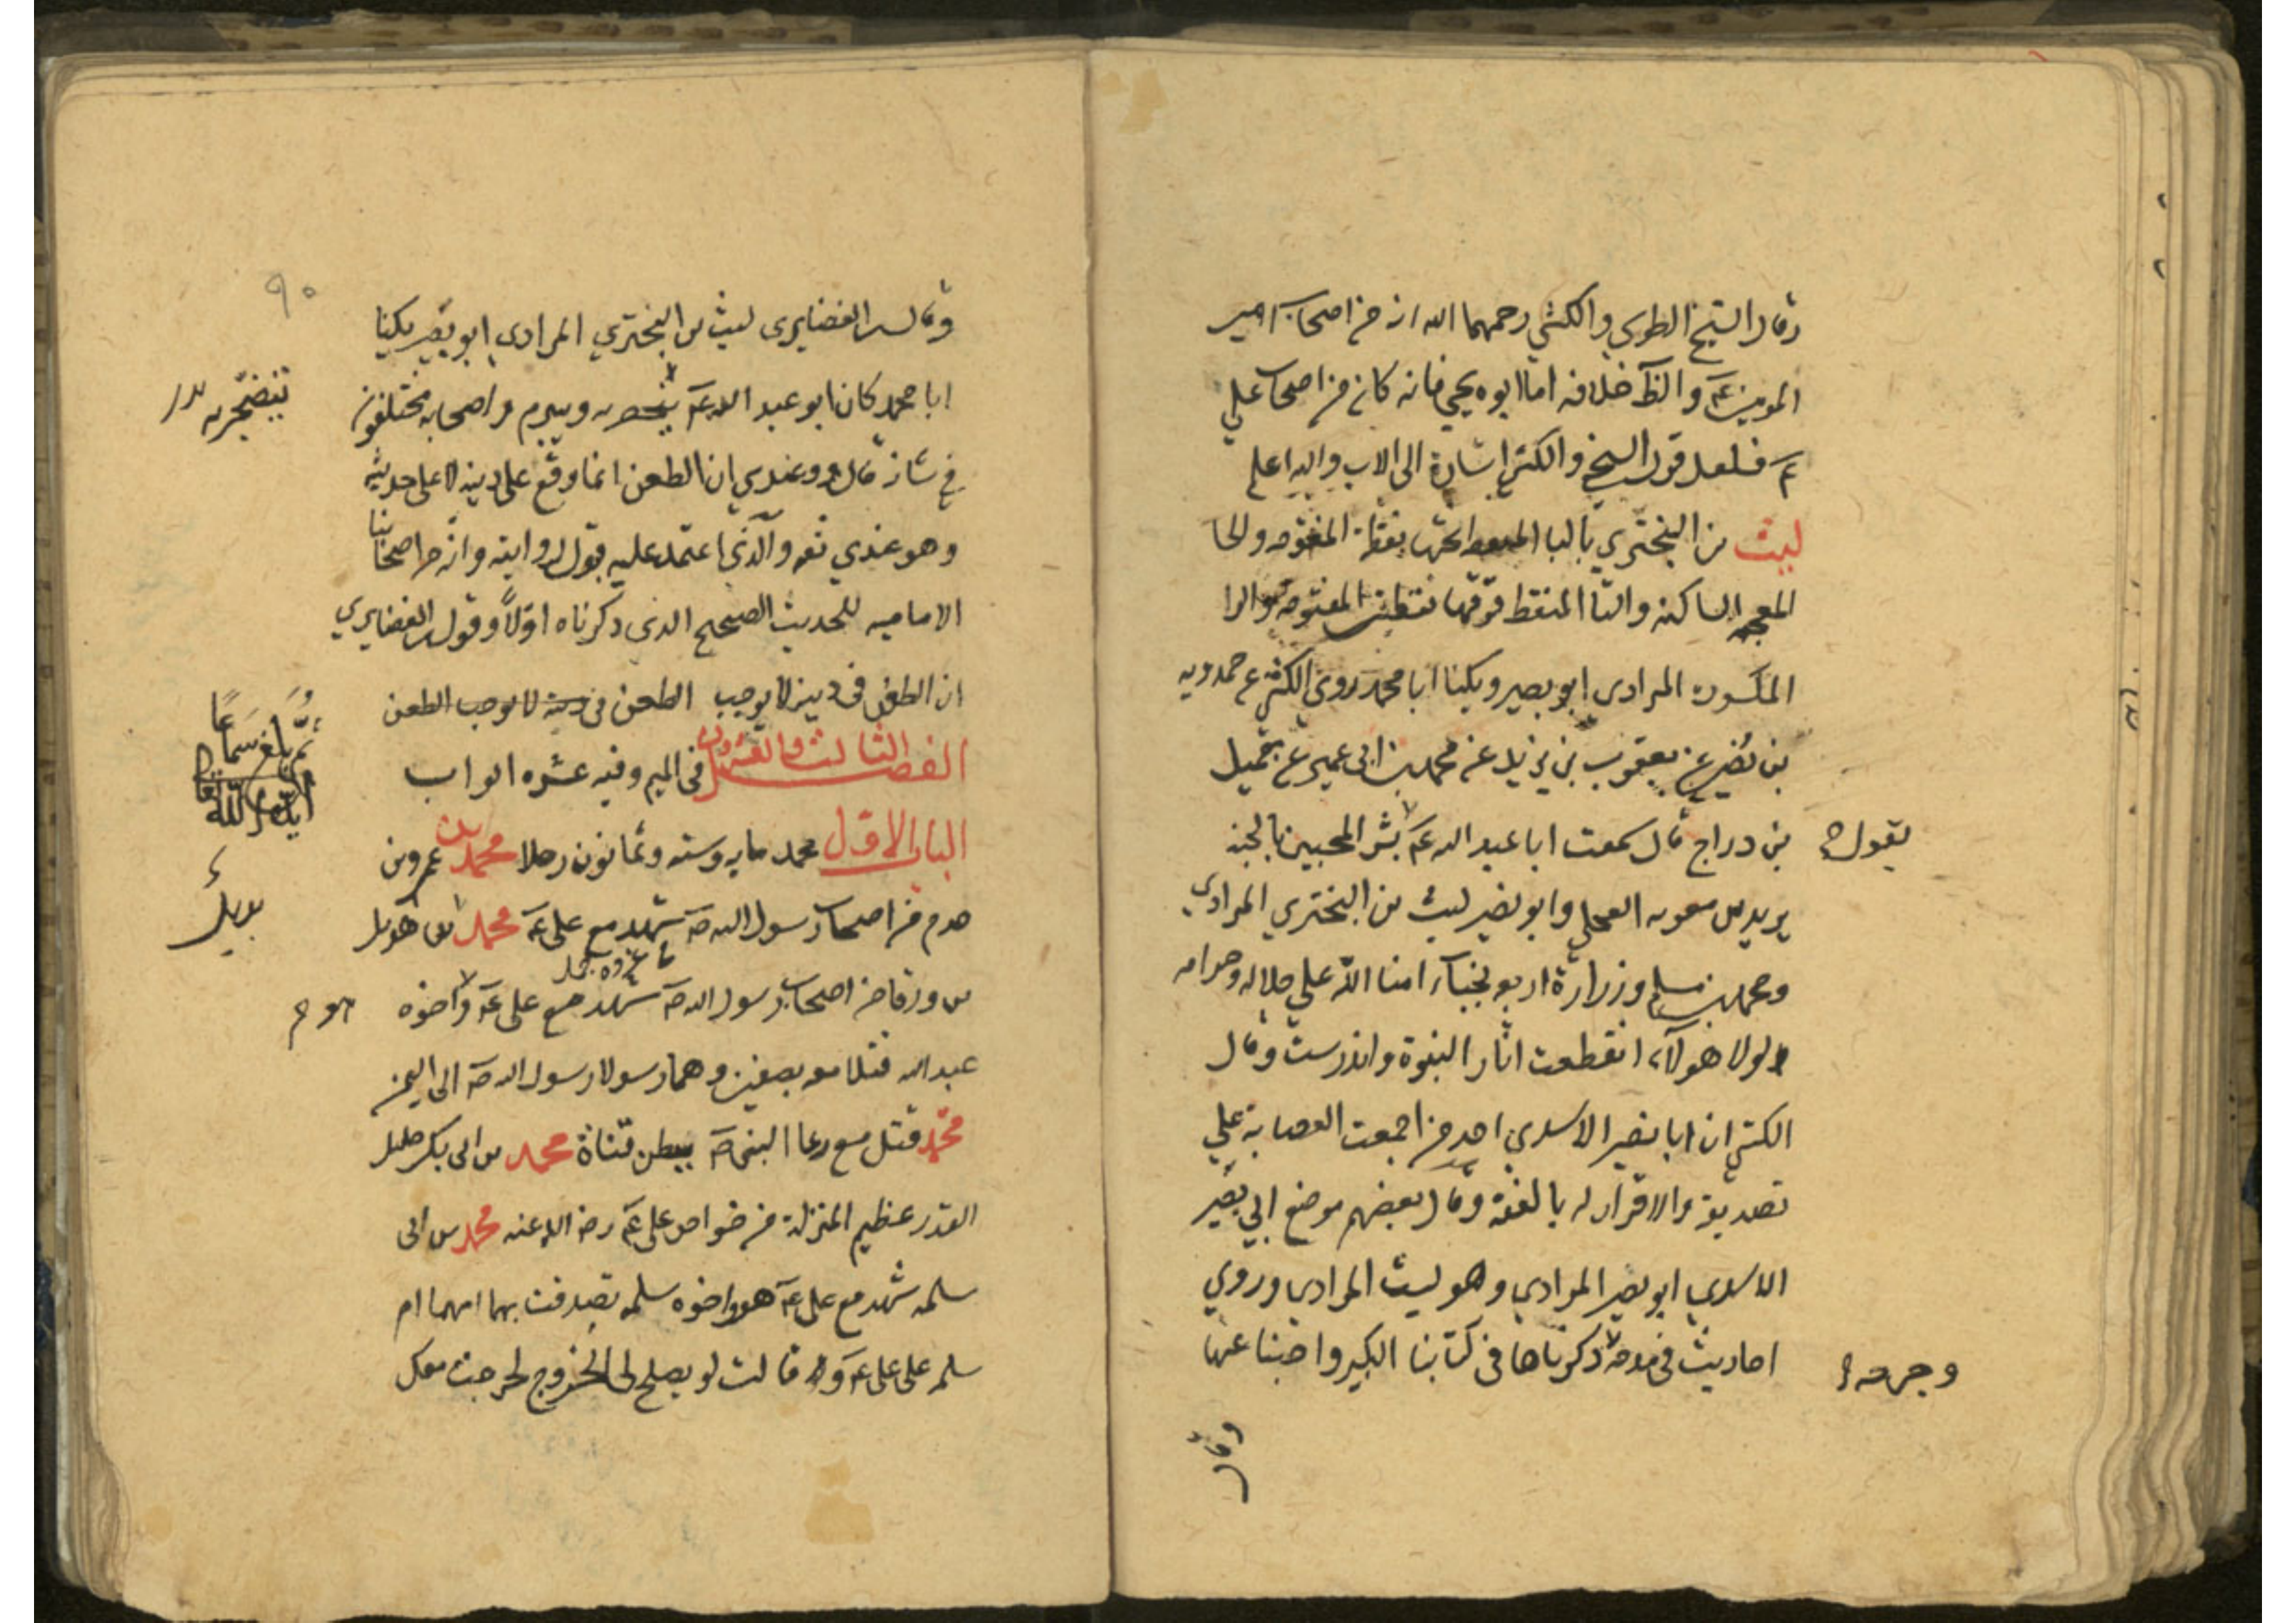 وقال الشيخ الطوسي والكشي رحمهما الله انه من اصحاب امير
المومنين عم والظ خلافه اما ابوه يحيى فانه كان من اصحاب علي
عم فلعل قول الشيخ والكشي اشارة الى الاب والله اعلم
ليث بن البختري بالبا المنقطه تحتها نقطة المفتوحه والخا
المعجمه الساكنه والتا المنقط فوقها نقطتين المفتوحه والرا
المكسوره المرادي ابو بصير ويكنا ابا محمد روى الكشي عن حمدويه
بن نصير عن يعقوب بن يزيد عن محمد بن ابي عمير عن جميل
بن دراج قال سمعت ابا عبد الله عم بشر المخبتين بالجنه
يقول
بريد بن معويه العجلي وابو بصير ليث بن البختري المرادي
ومحمد بن مسلم وزرارة اربعه نجباء امنا الله على حلاله وحرامه
لولا هولآء انقطعت اثار النبوة واندرست وقال
الكشي ان ابا بصير الاسدي احد من اجمعت العصابة على
تصديقه والاقرار له بالفقه وقال بعضهم موضع ابي بصير
الاسدي ابو بصير المرادي وهو ليث المرادي وروي
احاديث في مدحه ذكرناها في كتابنا الكبير واجبنا عنها
وجرحه
وقال
٩٠
وقال الغضايري ليث بن البختري المرادي ابو بصير يكنا
ابا محمد كان ابو عبد الله عم يتضجر به ويتبرم واصحابه مختلفون
يتضجر به
في شانه قال وعندي ان الطعن انما وقع على دينه لا على حديثه
وهو عندي ثقه والذي اعتمد عليه قبول روايته وانه من اصحابنا
الاماميه للحديث الصحيح الذي ذكرناه اولاً وقول الغضايري
ان الطعن في دينه لا يوجب الطعن في دينه لا يوجب الطعن
ثم بلغ سماعاً
ايده الله
الفصل الثالث والعشرون في الميم وفيه عشره ابواب
الباب الاول محمد مايه وسته وثمانون رجلا محمد بن عمرو بن
حزم من اصحاب رسول الله ص شهد مع علي عم محمد بن بديل
بديل
بن ورقا من اصحاب رسول الله ص شهد مع علي عم واخوه
هو
عبد الله قتلا معه بصفين وهما رسولا رسول الله ص الى اليمن
محمد قتل مع رعا النبي ص ببطن قناة محمد بن ابي بكر جليل
القدر عظيم المنزلة من خواص علي عم رضي الله عنه محمد بن ابي
سلمه شهد مع علي عم هو واخوه سلمه تصدقت بهما امهما ام
سلمه على علي عم وقالت لو يصلح لي الخروج لخرجت معك